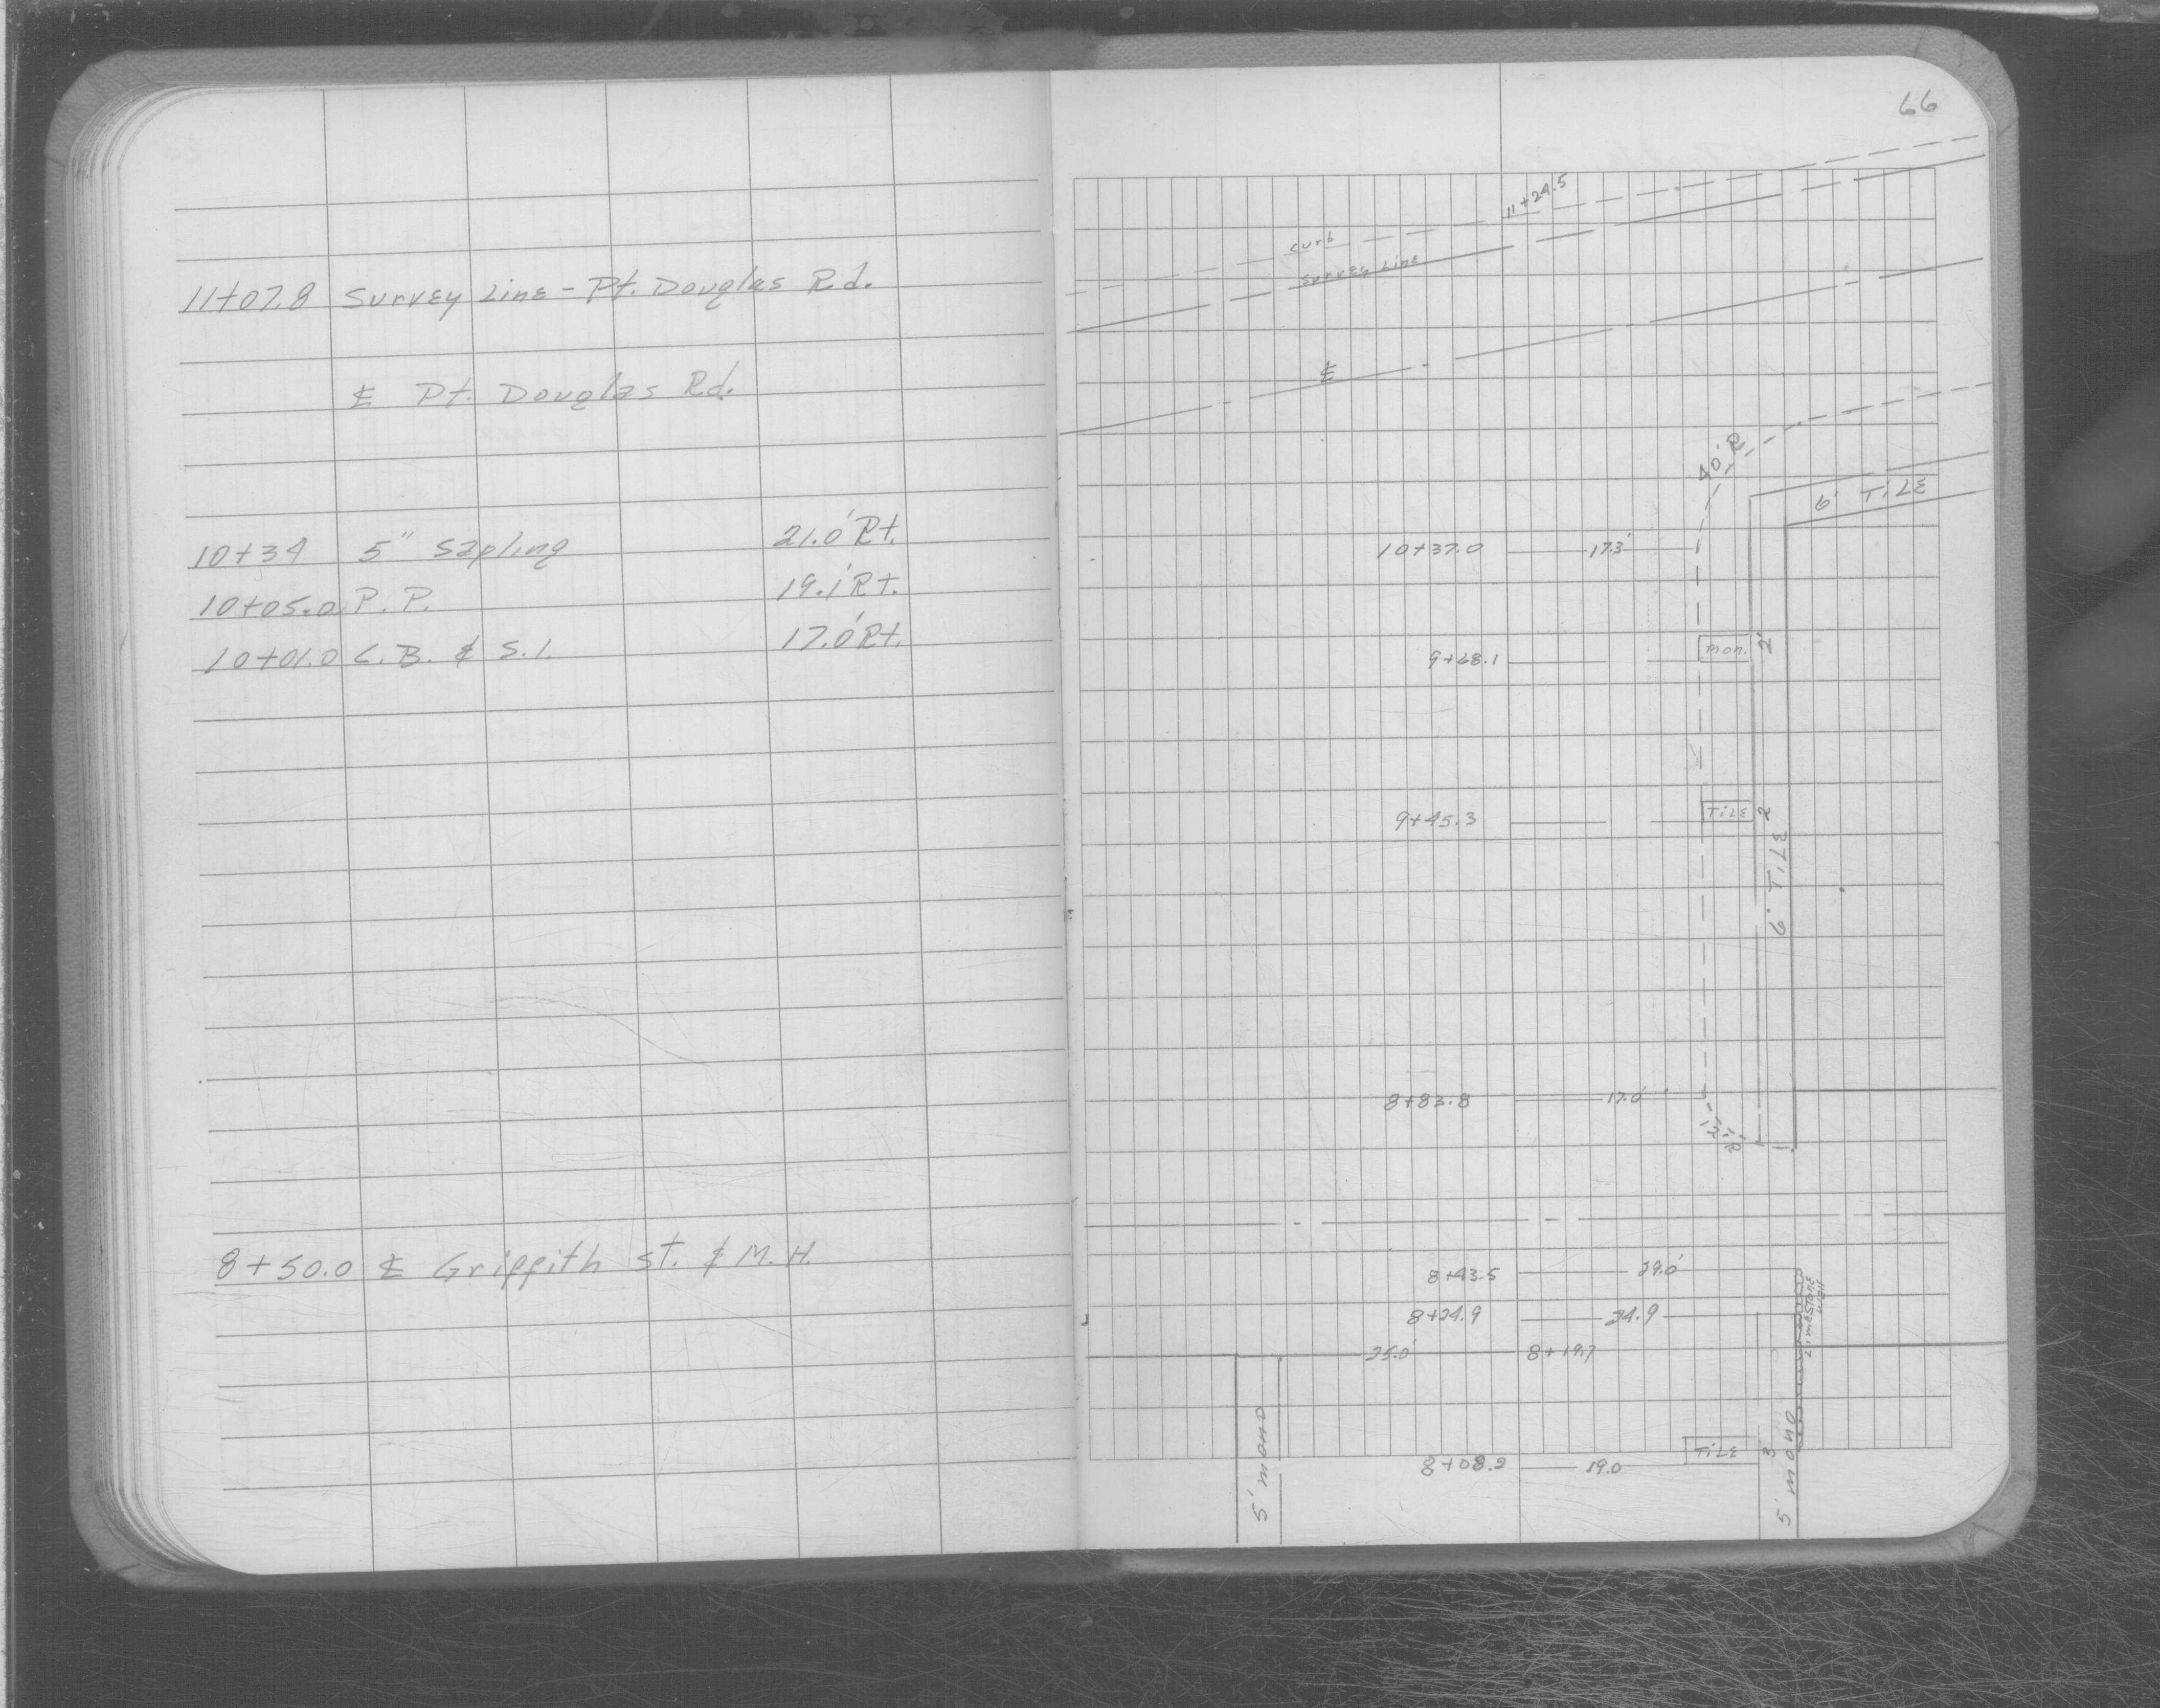 11+07.8 Survey Line - Pt. Douglas Rd.
℄ Pt. Douglas Rd.
10+34 5" Sapling 21.0' Rt.
10+05.0 P.P. 19.1' Rt.
10+01.0 C.B. & S.I. 17.0' Rt.
8+50.0 ℄ Griffith St. & M.H.
66
11+24.5
curb
Survey Line
℄
40' R.
6' TILE
10+37.0 17.3'
9+68.1 mon. 2'
9+45.3 TILE 2
6' TILE
8+83.8 17.0'
12' R
8+43.5 29.0'
8+24.9 24.9
LIMESTONE WALL
25.0' 8+19.7
5' mono
5' mono
8+08.2 19.0 TILE 3'